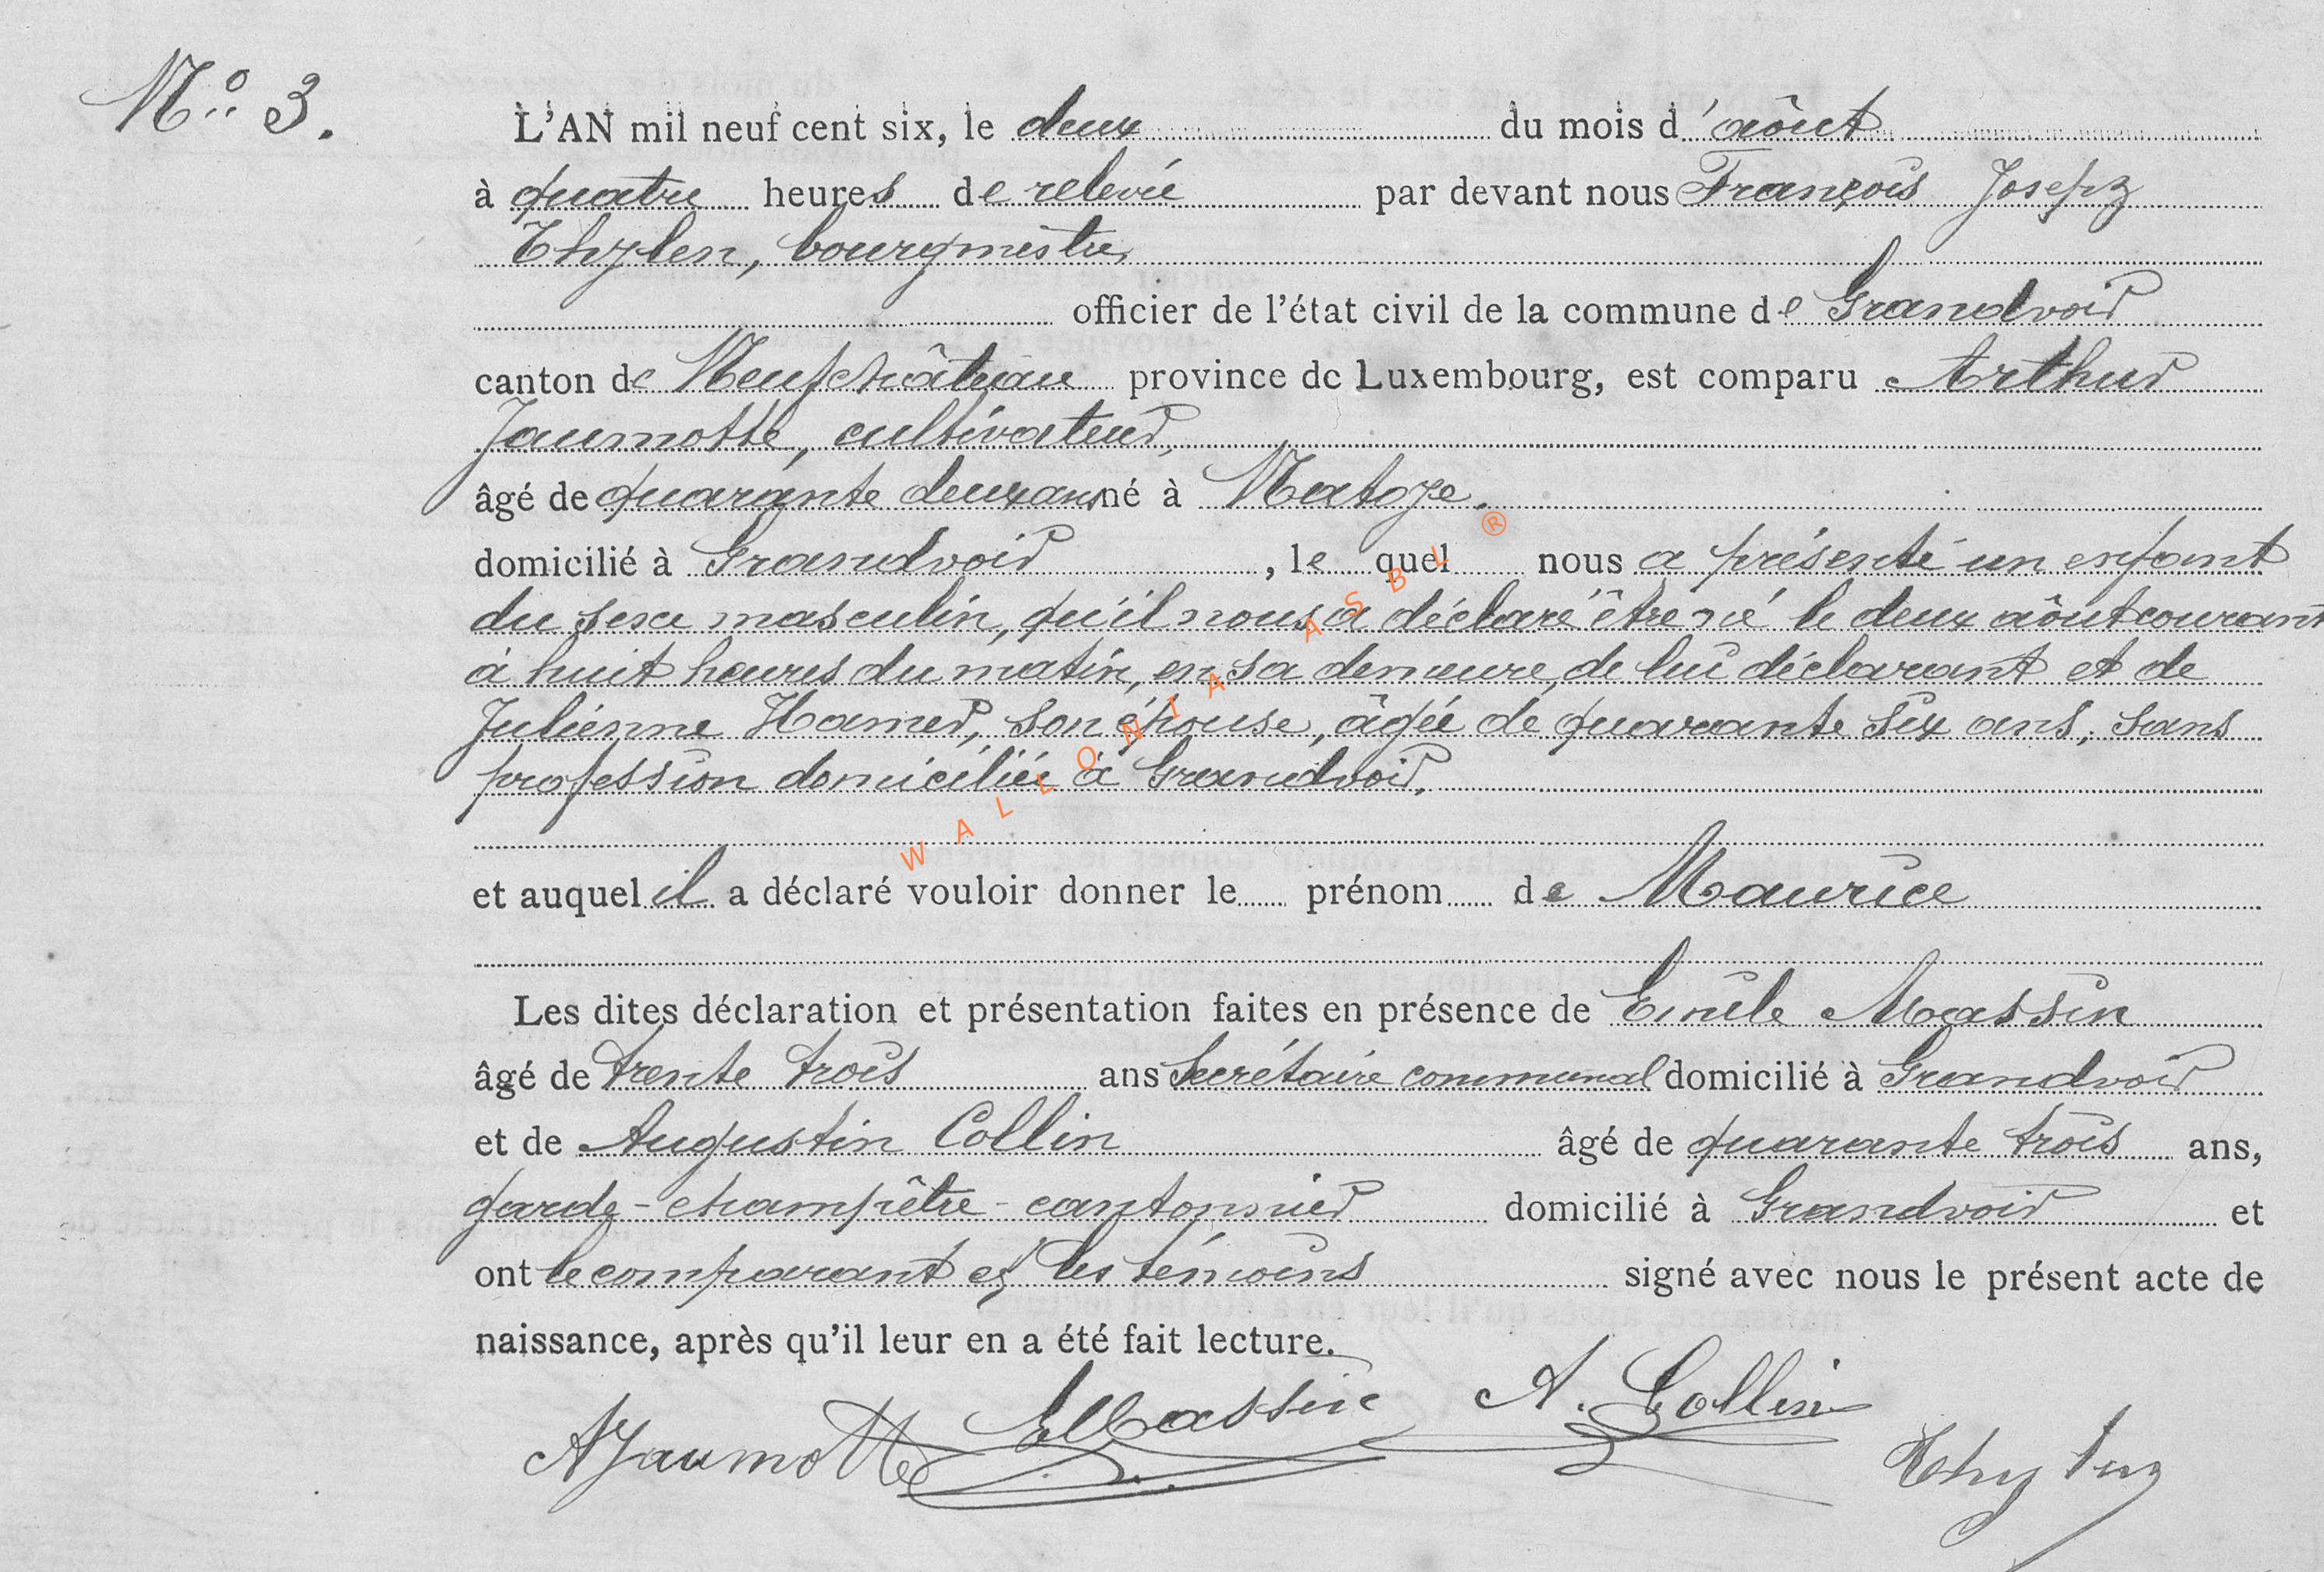 N.o 3.
L'AN mil neuf cent six, le deux du mois d'aôut
à quatre heures de relevée par devant nous François Joseph
Thylen, bourgmestre
officier de l'état civil de la commune de Grandvoir
canton de Neufchâteau province de Luxembourg, est comparu Arthur
Jaumotte, cultivateur,
âgé de quarante deux ans né à Natoye.
domicilié à Grandvoir, le quel nous a présenté un enfant
du sexe masculin, qu'il nous a déclaré être né le deux aôut courant
à huit heures du matin, en sa demeure, de lui déclarant et de
Julienne Hamer, son épouse, âgée de quarante six ans, sans
profession domiciliée à Grandvoir.
et auquel il a déclaré vouloir donner le prénom de Maurice
Les dites déclaration et présentation faites en présence de Emile Massin
âgé de trente trois ans secrétaire communal domicilié à Grandvoir
et de Augustin Collin âgé de quarante trois ans,
garde-champêtre-cantonnier domicilié à Grandvoir et
ont le comparant et les témoins signé avec nous le présent acte de
naissance, après qu'il leur en a été fait lecture.
AJaumotte EMassin A. Collin
WALLONIA ASBL ®